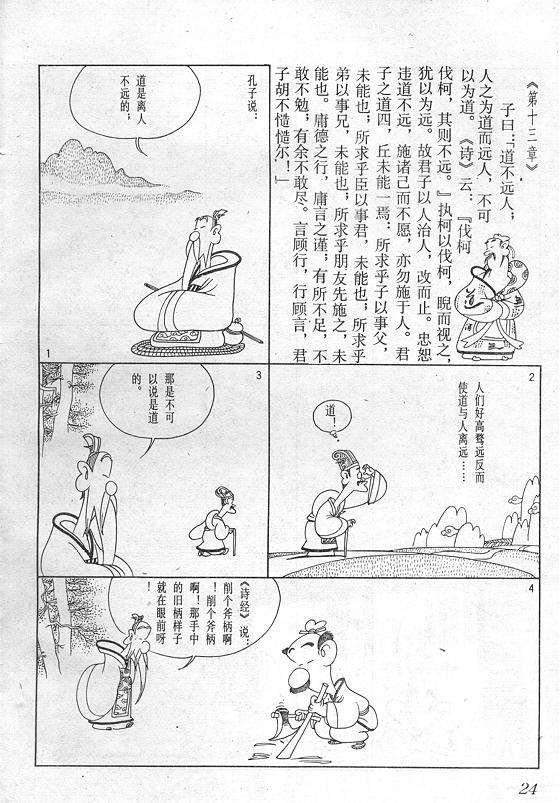 《第十三章》
子曰：“道不远人；
人之为道而远人，不可
以为道。《诗》云：『伐柯
伐柯，其则不远。』执柯以伐柯，睨而视之，
犹以为远。故君子以人治人，改而止。忠恕
违道不远，施诸己而不愿，亦勿施于人。君
子之道四，丘未能一焉：所求乎子以事父，
未能也；所求乎臣以事君，未能也；所求乎
弟以事兄，未能也；所求乎朋友先施之，未
能也。庸德之行，庸言之谨；有所不足，不
敢不勉，有余不敢尽。言顾行，行顾言，君
子胡不慥慥尔！”
孔子说：
道是离人
不远的；
1
2
人们好高骛远反而
使道与人离远……
道！
3
那是不可
以说是道
的。
4
《诗经》说：
削个斧柄啊
！削个斧柄
啊！那手中
的旧柄样子
就在眼前呀
！
24